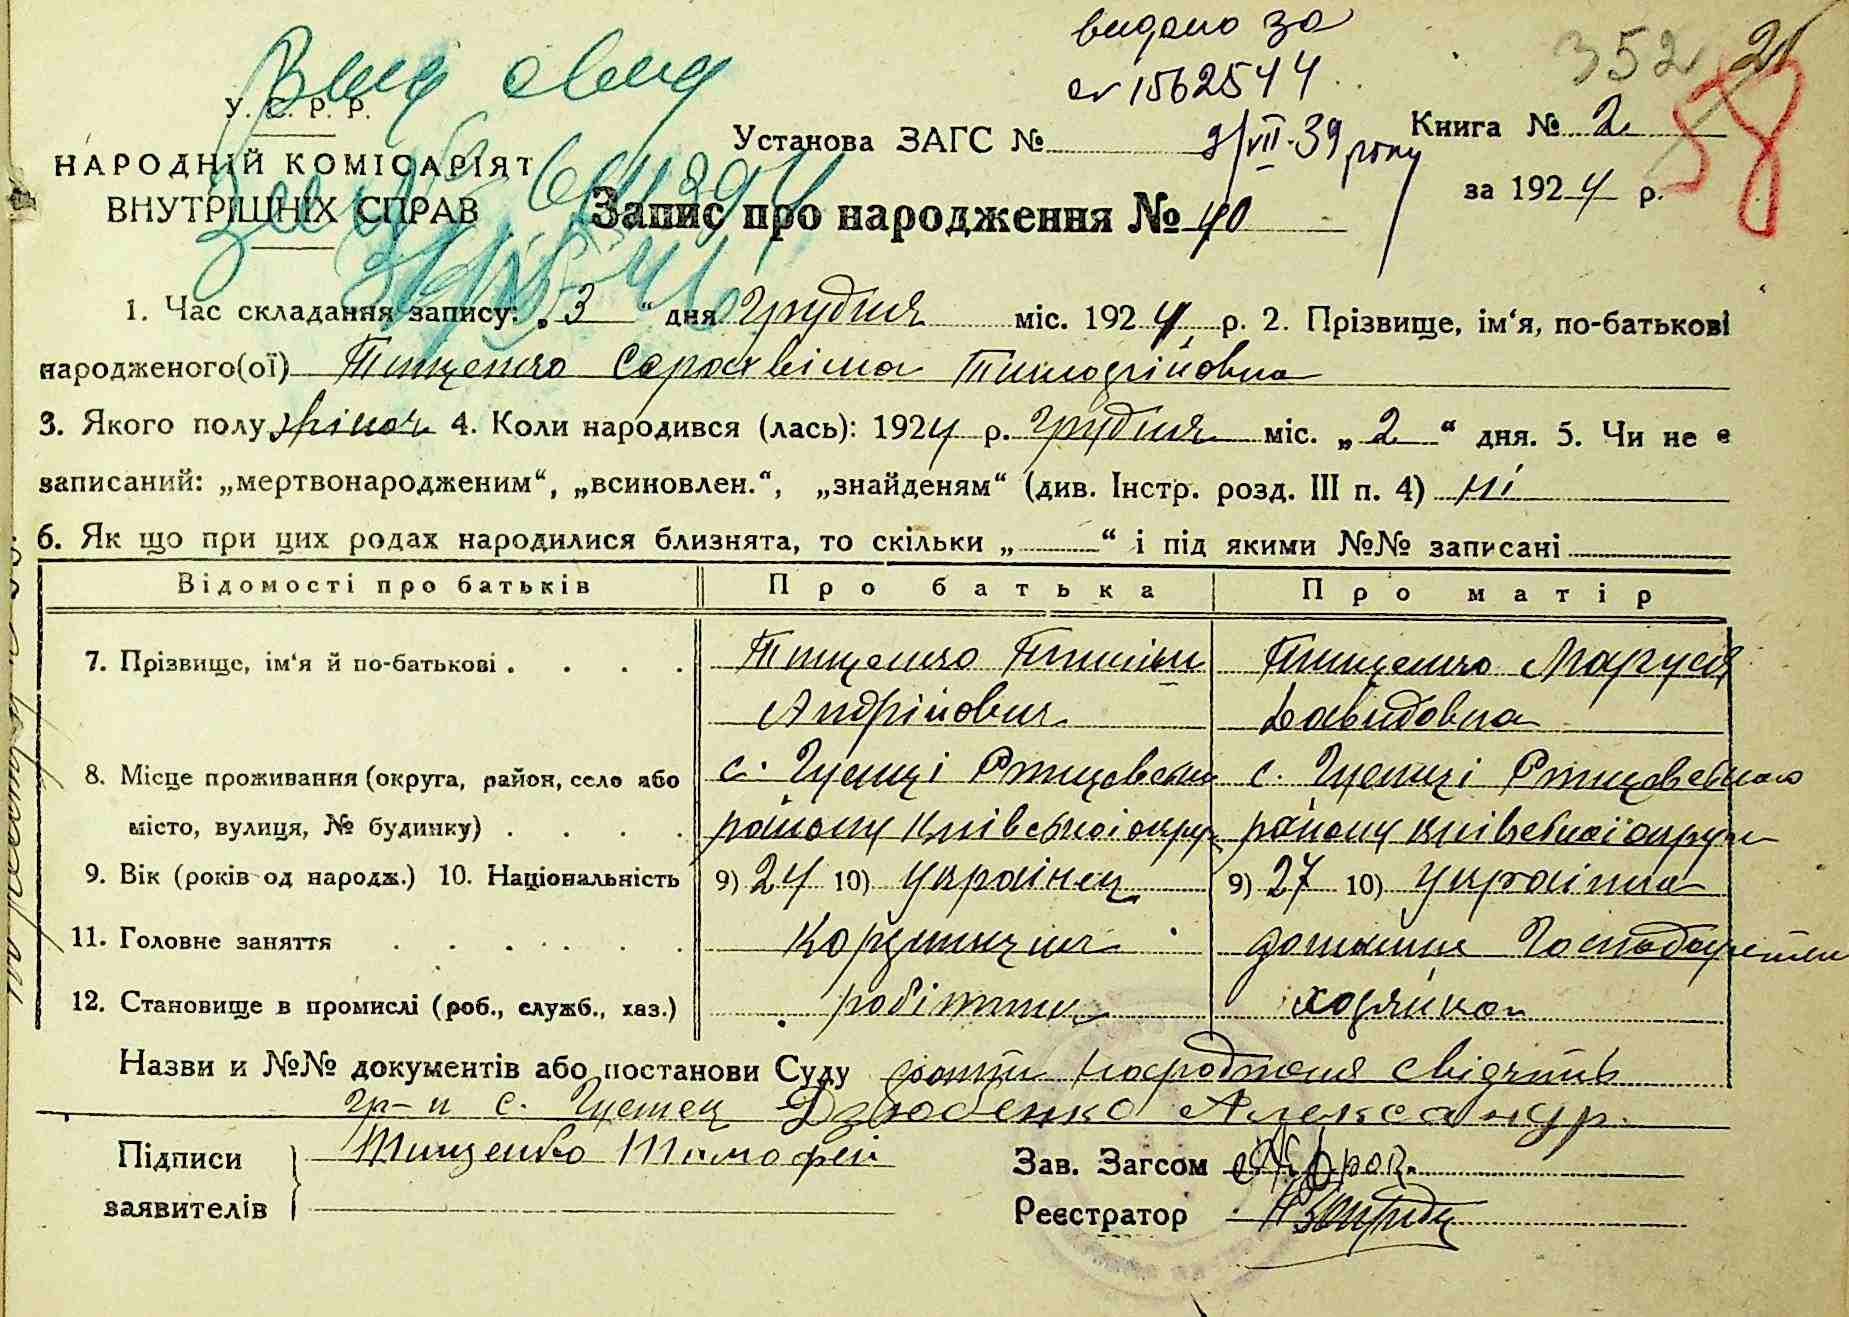 видано за
352 21
№ 1562544
58
Вид свид
У. С. Р. Р.
Установа ЗАГС № 9/VII-39 року
Книга № 2
НАРОДНІЙ КОМІСАРІЯТ
ВНУТРІШНІХ СПРАВ
за 1924 р.
Запис про народження № 40
1. Час складання запису: „3“ дня Грудня міс. 1924 р. 2. Прізвище, ім‘я, по-батькові
народженого(ої) Тищенко Серахвіма Тимофійовна
3. Якого полу жіноч 4. Коли народився (лась): 1924 р. Грудня міс. „2“ дня. 5. Чи не є
записаний: „мертвонародженим“, „всиновлен.“, „знайденям“ (див. Інстр. розд. III п. 4) ні
6. Як що при цих родах народилися близнята, то скільки „ “ і під якими №№ записані
Відомості про батьків Про батька Про матір
7. Прізвище, ім‘я й по-батькові . . . . Тищенко Тиміш Тищенко Маруся
Андрійович Давидовна
8. Місце проживання (округа, район, село або с. Гусенці Ржищевськ с. Гусенці Ржищевського
місто, вулиця, № будинку) . . . . району Київської округ району Київської округи
9. Вік (років од народж.) 10. Національність 9) 24 10) українец 9) 27 10) українка
11. Головне заняття . . . . . . домашнє Господарство
12. Становище в промислі (роб., служб., хаз.) робітник хозяйка
Назви и №№ документів або постанови Суду народження свідчить
гр-н с. Гусенец Дзюбенко Александр.
Підписи Тищенко Тимофей Зав. Загсом
заявителів Реєстратор